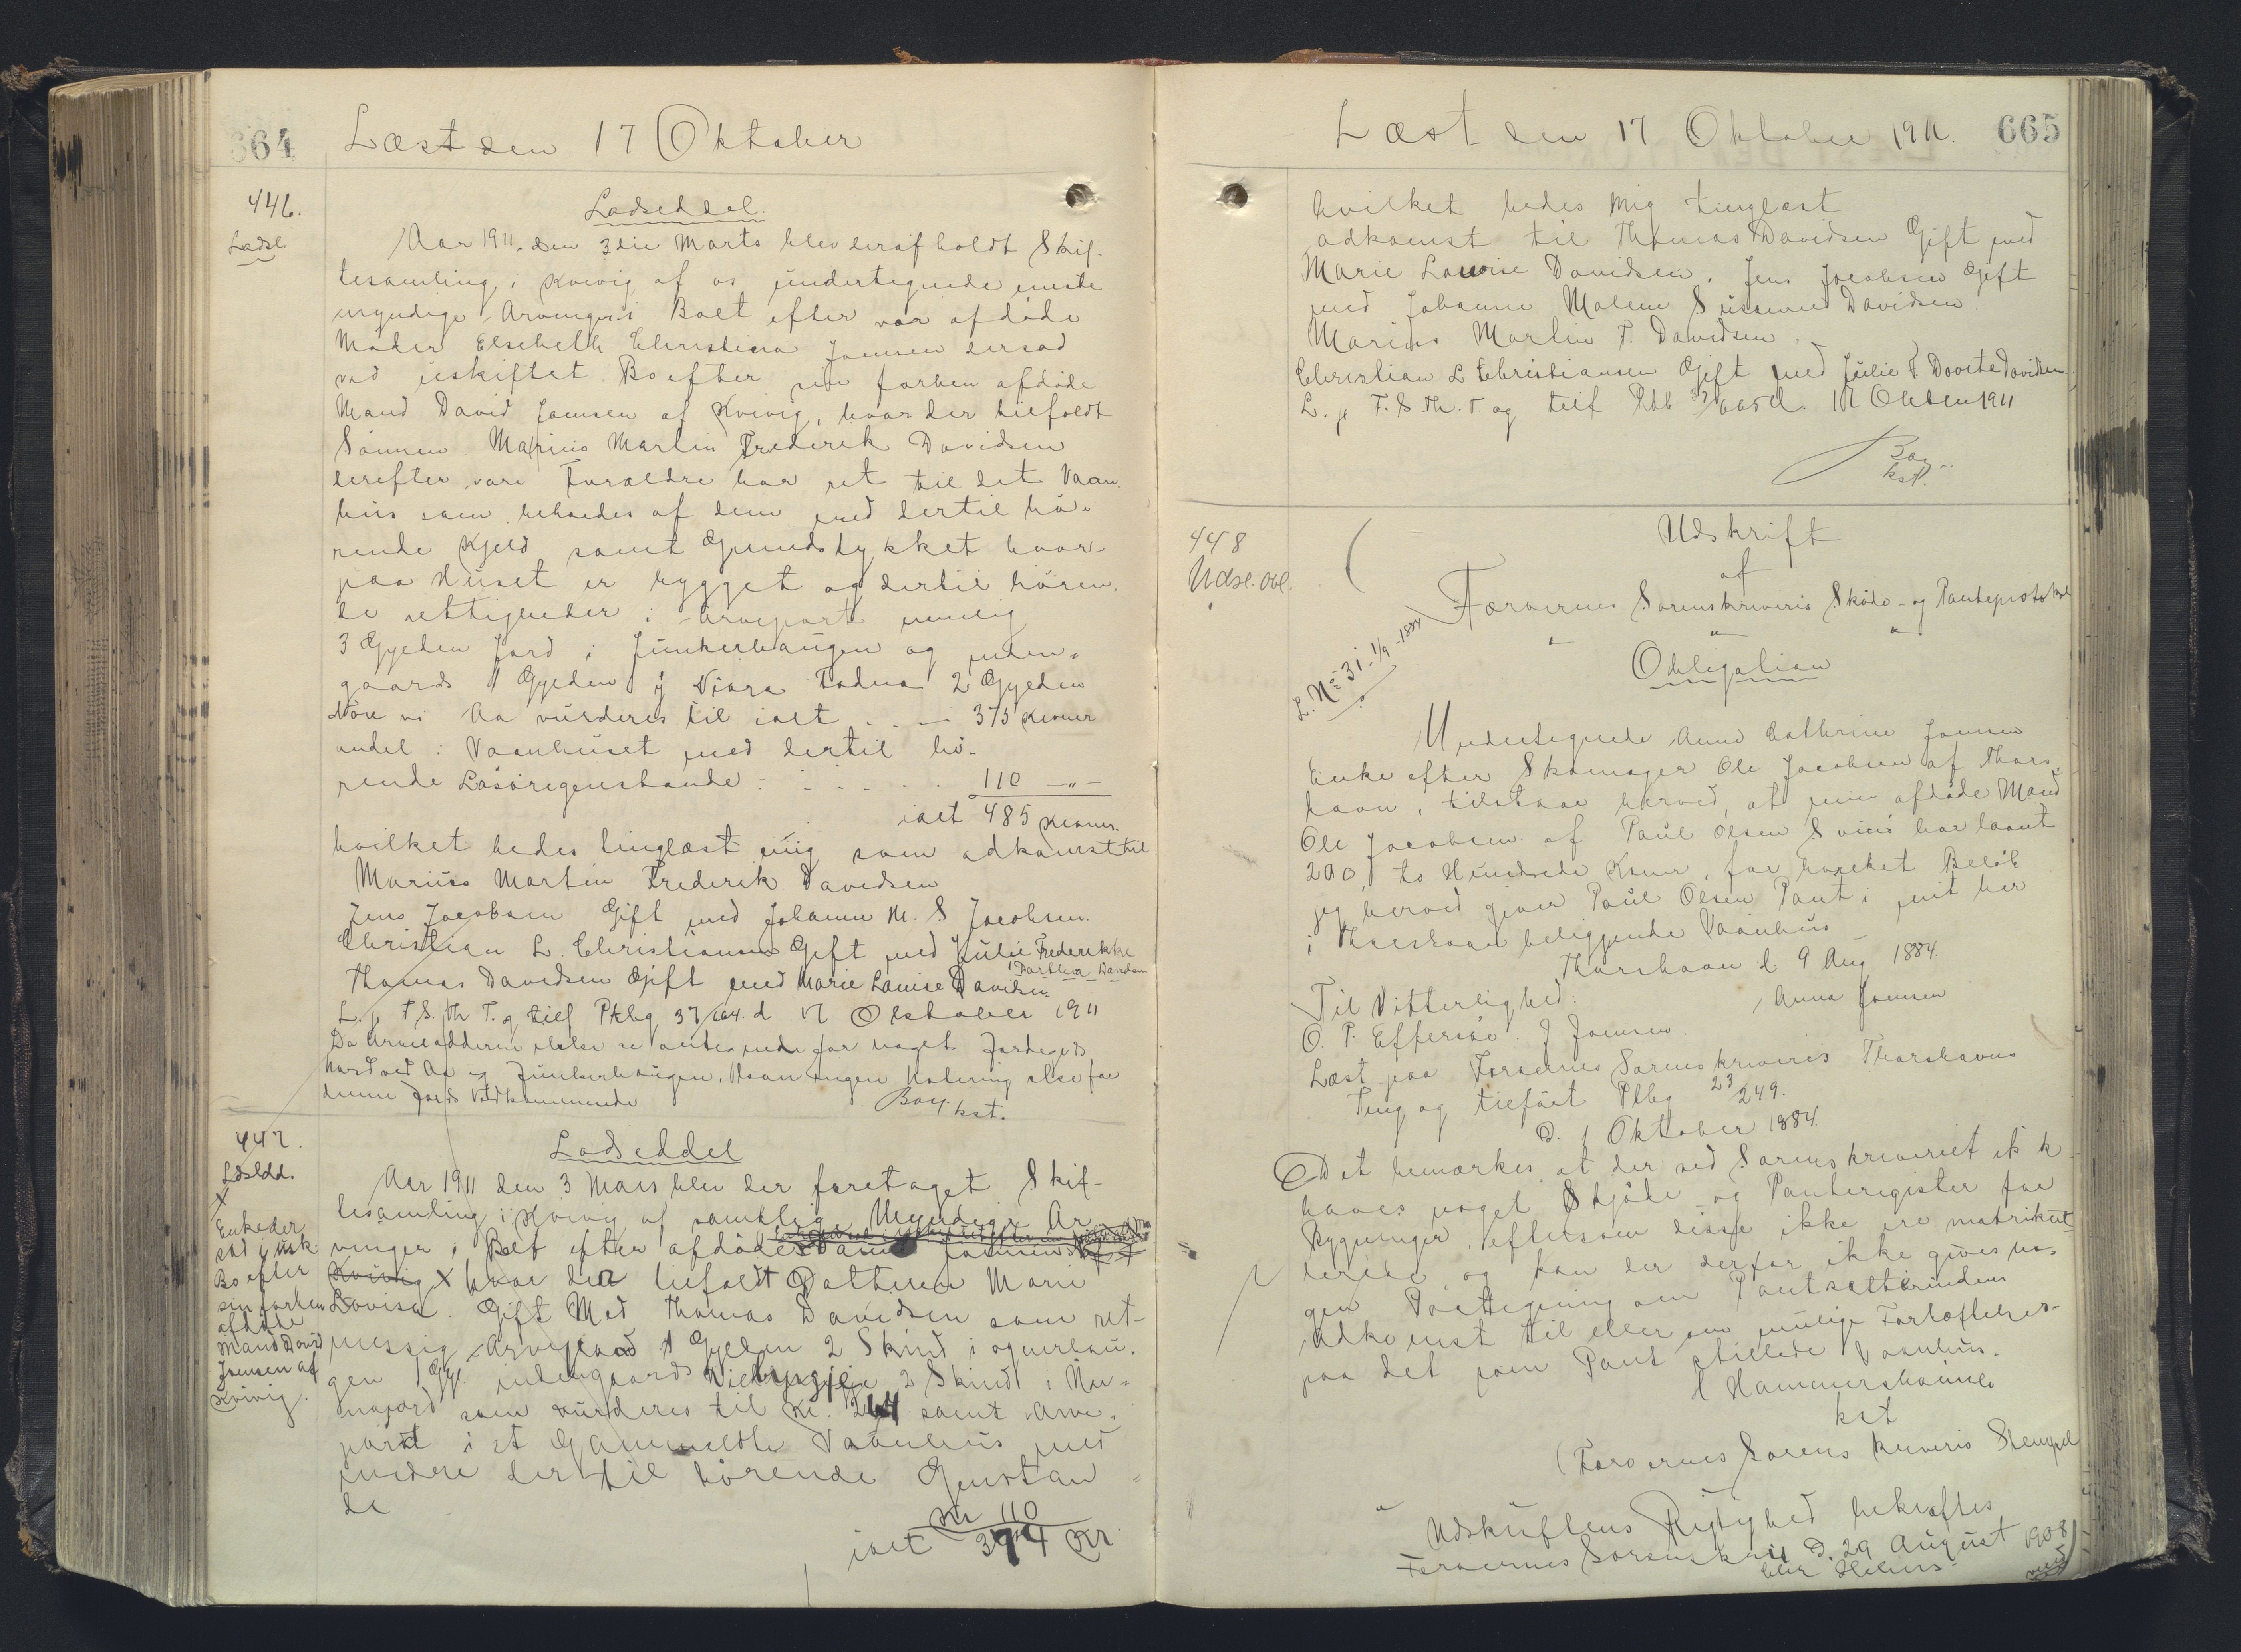 664
Læst den 17 Oktober
446.
Ladsl.
Ladseddel.
Aar 1911. den 3die Marts blev der afholdt Skif-
tesamling i Kvivig af os undertegnede eneste
myndige Arvinger i Boet efter vor afdøde
Moder Elsebeth Christina Joensen der sad
ved uskiftet Bo efter sin forhen afdøde
Mand David Joensen af Kvivig, hvor der tilfaldt
Sönnen Marius Martin Frederik Davidsen
derefter vore Forældre har ret til det Vaan-
hus som beboedes af dem med dertil hö-
rende Kjeld samt Grundstykket hvor-
paa Huset er bygget og dertil hören-
de rettigheder i Arvepart nemlig
3 Gyeden Jord i Junkerhaugen og uden-
gaards 1 Gyeden 2 Gyeden
Aa vurderes til ialt . . — 375 Kroner
andel i Vaanhuset med dertil hö-
rende Lösöregenstande . . . . . 110 —"—
ialt 485 Kroner.
hvilket bedes tinglæst mig som adkomst til
Marius Martin Frederik Davidsen
Jens Jacobsen Gift med Johanne M. S Jacobsen.
Christian L. Christiansen Gift med Julie Frederikke
Dorthea Davidsen
Thomas Davidsen Gift med Marie Louise Davidsen
L. p F. S. Th T. og tilf Ptbg 37/664. d 17 Oktober 1911
Da Arveladderen ikke er antegnede for noget Jordegods
Nord ved Aa og Junkerhaugen. Haan ingen Notering ske for
denne Jords Vedkommende
Bay.
kst.
447.
Ladsedd.
X
Enke der
sad i usk
Bo efter
sin forhen
afdøde
Mand David
Joensen af
Kvivig.
Ladseddel
Aar 1911 den 3 Mars blev der foretaget Skif-
tesamling i Kvivig af samtlige Myndige Ar
vinger i Boet efter afdøde Joensen af
Kvivig X hvor der tilfaldt Datteren Marie
Lovise. Gift Med Thomas Davidsen som ret-
messig Arvejord 1 Gylden 2 Skind i
gen 1 Gyl. udengaards 2 Skind i
som vurderes til Kr. 264 samt Arve-
part i et Gammeldte Vaanhus med
mere der til hörende Genstan-
de
Kr 110
ialt 374 Kr
Læst den 17 Oktober 1911. 665
hvilket bedes mig tinglæst
adkomst til Thomas Davidsen Gift med
Marie Louise Davidsen, Jens Jacobsen Gift
med Johanne Malene Davidsen
Marius Martin F. Davidsen.
Christian L Christiansen Gift med Julie F. Davidsen
L. p F. S. Th. T. og tilf Ptb 37/665 d. 17 Oktber 1911
Bay
kst.
448
Udsl. obl.
Udskrift
af
Færøernes Sorenskriveris Skøde- og Panteprotokol
" " "
L. No 31. 1/9 - 1884
Obligation
Undertegnede Anna Cathrine Joensen
Enke efter Skomager Ole Jacobsen af Thors-
havn, tilstaar herved, at min afdøde Mand
Ole Jacobsen af Paul Olsen har laant
200 to Hundrede Kroner, for hvilket Beløb
jeg herved giver Paul Olsen Pant i mit her
i Thorshavn beliggende Vaanhus
Thorshavn d. 9 Aug 1884.
Til Vitterlighed: Anna Joensen
O. P. Effersøe. J Joensen.
Læst paa Færøernes Sorenskriveris Thorshavns
Ting og tilført Ptbg 23/249.
D. 1 Oktober 1884.
Det bemærkes at der ved Sorenskriveriet ikk
haves noget Skjøde og Panteregister for
Bygninger eftersom disse ikke ere matrikul
lerede, og kan der derfor ikke gives no-
gen Paategning om Pantsætterindens
adkomst til eller om mulige Forhæftelser
paa det som Pant stillede Vaanhus.
Hammershaimb
kst
(Færøernes Sorenskriveris Stempel
Udskriftens Rigtighed bekræftes
Færøernes Sorenskriveri D. 29 August 1908